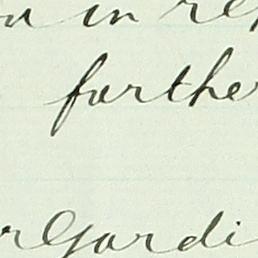 in re
farthe
rGardi